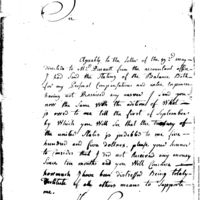 Sir
Agreeably to the letter of the 23d may
directed to Mr. Durant from the accountant office
I had Sent the Stating of the Balance Both
for my Personal Compensation and order Express
having not Received any answer I Send you
now the Same With the addition of What
is owed to me till the first of September
by Which you Will See that the Treasury of
the united States is indebted to me five
hundred and five Dollars. please your honor
to Consider that I did not Receive any money
Since ten months and you Will Conclude
how much I have been Distressed Being totaly
Destitute of all others means to Support
me.